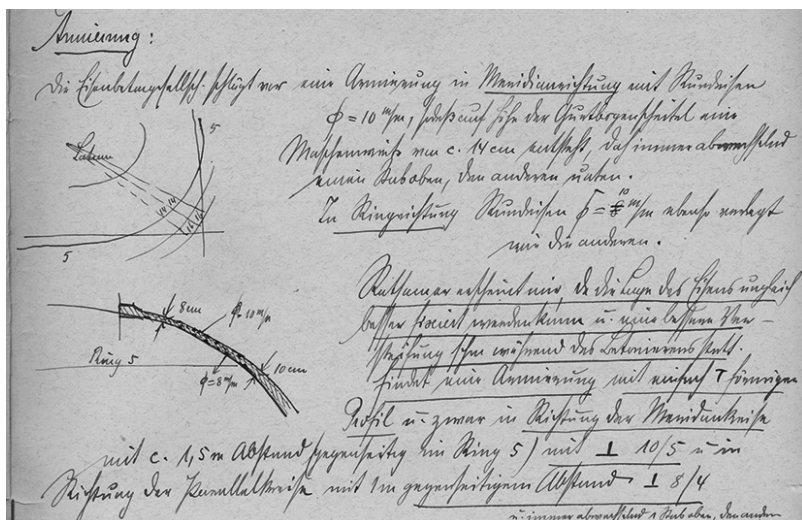 Armierung:
Die Eisenbetongesellsch. schlägt vor eine Armierung in Meridianrichtung mit Rundeisen
ϕ = 10 m/m, sodaß auf Höhe der Gurtbogenscheitel eine
Maschenweite von c. 14 cm entsteht, das immer abwechselnd
einen Stab oben, den anderen unten.
In Ringrichtung Rundeisen ϕ = 10 m/m ebenso verlegt
wie die anderen.
5
Latern
14 14
16 16
5
Ratsamer erscheint mir, da die Lage des Eisens ungleich
besser fixiert werden kann u. eine bessere Ver-
steifung schon während des Betonierens statt-
findet eine Armierung mit einfach T förmigen
Profil u. zwar in Richtung der Meridiankreise
8cm
ϕ 10 m/m
Ring 5
ϕ = 8 m/m
10 cm
mit c. 1,5 m Abstand gegenseitig (im Ring 5) mit ⊥ 10/5 u in
Richtung der Parallelkreise mit 1m gegenseitigem Abstand ⊥ 8/4
u. immer abwechselnd 1 Stab oben, den andern